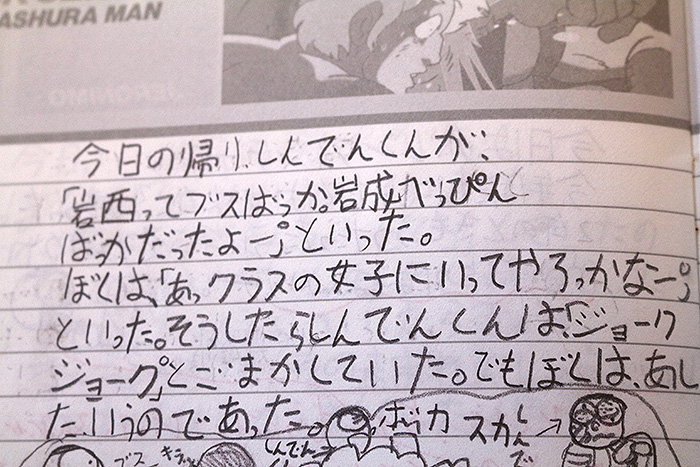 ASHURA MAN
今日の帰り、しんでんくんが、
「岩西ってブスばっか。岩成べっぴん
ばっかだったよー。」といった。
ぼくは、「あっクラスの女子にいってやろっかなー。」
といった。そうしたらしんでんくんは、「ジョーク
ジョーク。」とごまかしていた。でもぼくは、あし
たいうのであった。
ボッカ スカ しんで
ブス キラッ しんでん